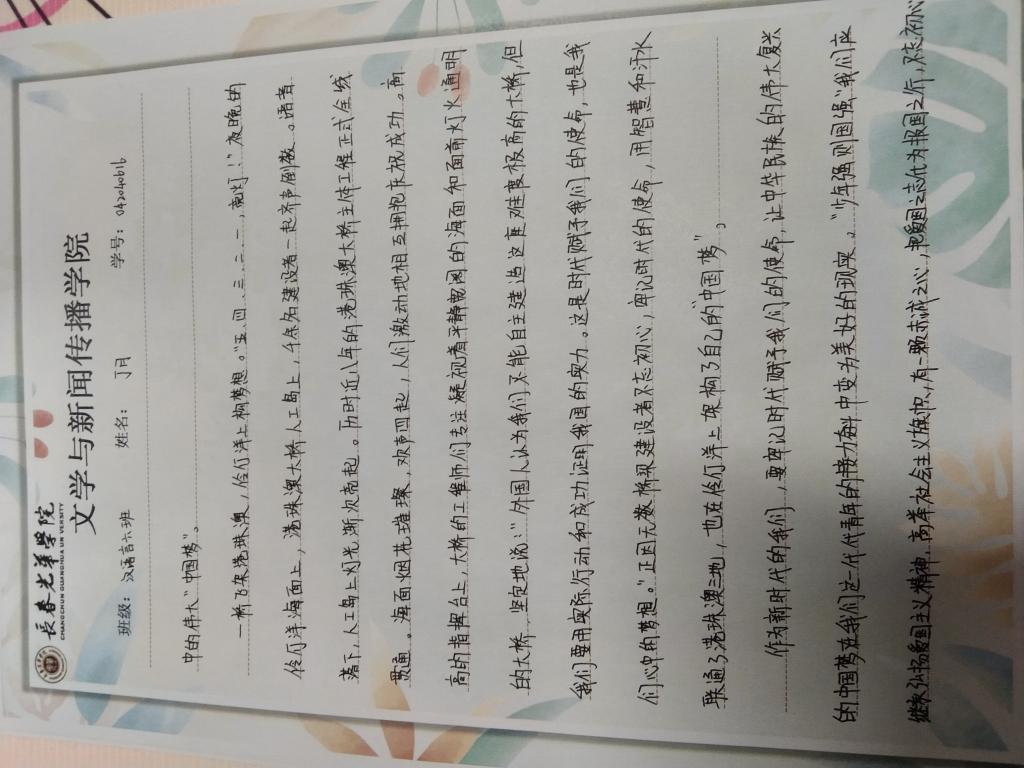 长春光华学院
CHANGCHUN GUANGHUA UNIVERSITY
文学与新闻传播学院
班级：汉语言六班 姓名：丁月 学号：042040616
中的伟大“中国梦”。
一桥飞架港珠澳，伶仃洋上构梦想。“五、四、三、二、一，亮灯！”夜晚的
伶仃洋海面上，港珠澳大桥人工岛上，千余名建设者一起齐声倒数。话音
落下，人工岛上灯光渐次亮起。历时近八年的港珠澳大桥主体工程正式全线
贯通。海面烟花璀璨，欢声四起，人们激动地相互拥抱庆祝成功。高
高的指挥台上，大桥的工程师们专注凝视着平静宽阔的海面和面前灯火通明
的大桥，坚定地说：“外国人认为我们又不能自主建造这座难度极高的大桥，但
我们要用实际行动和成功证明我国的实力。这是时代赋予我们的使命，也是我
们心中的梦想。”正因无数桥梁建设者不忘初心，牢记时代的使命，用智慧和汗水
联通了港珠澳三地，也在伶仃洋上架构了自己的“中国梦”，
作为新时代的我们，要牢记时代赋予我们的使命，让中华民族的伟大复兴
的中国梦在我们这一代代青年的接力奔跑中变为美好的现实。“少年强则国强”我们应
继承弘扬爱国主义精神，高举社会主义旗帜，有一颗赤诚之心，把爱国之志化为报国之行，不忘初心